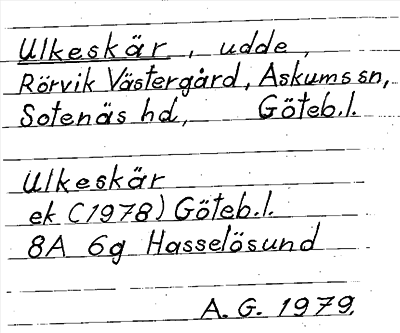 Ulkeskär, udde,
Rörvik Västergård, Askums sn,
Sotenäs hd, Göteb.l.
Ulkeskär
ek (1978) Göteb.l.
8A 6g Hasselösund
A. G. 1979.